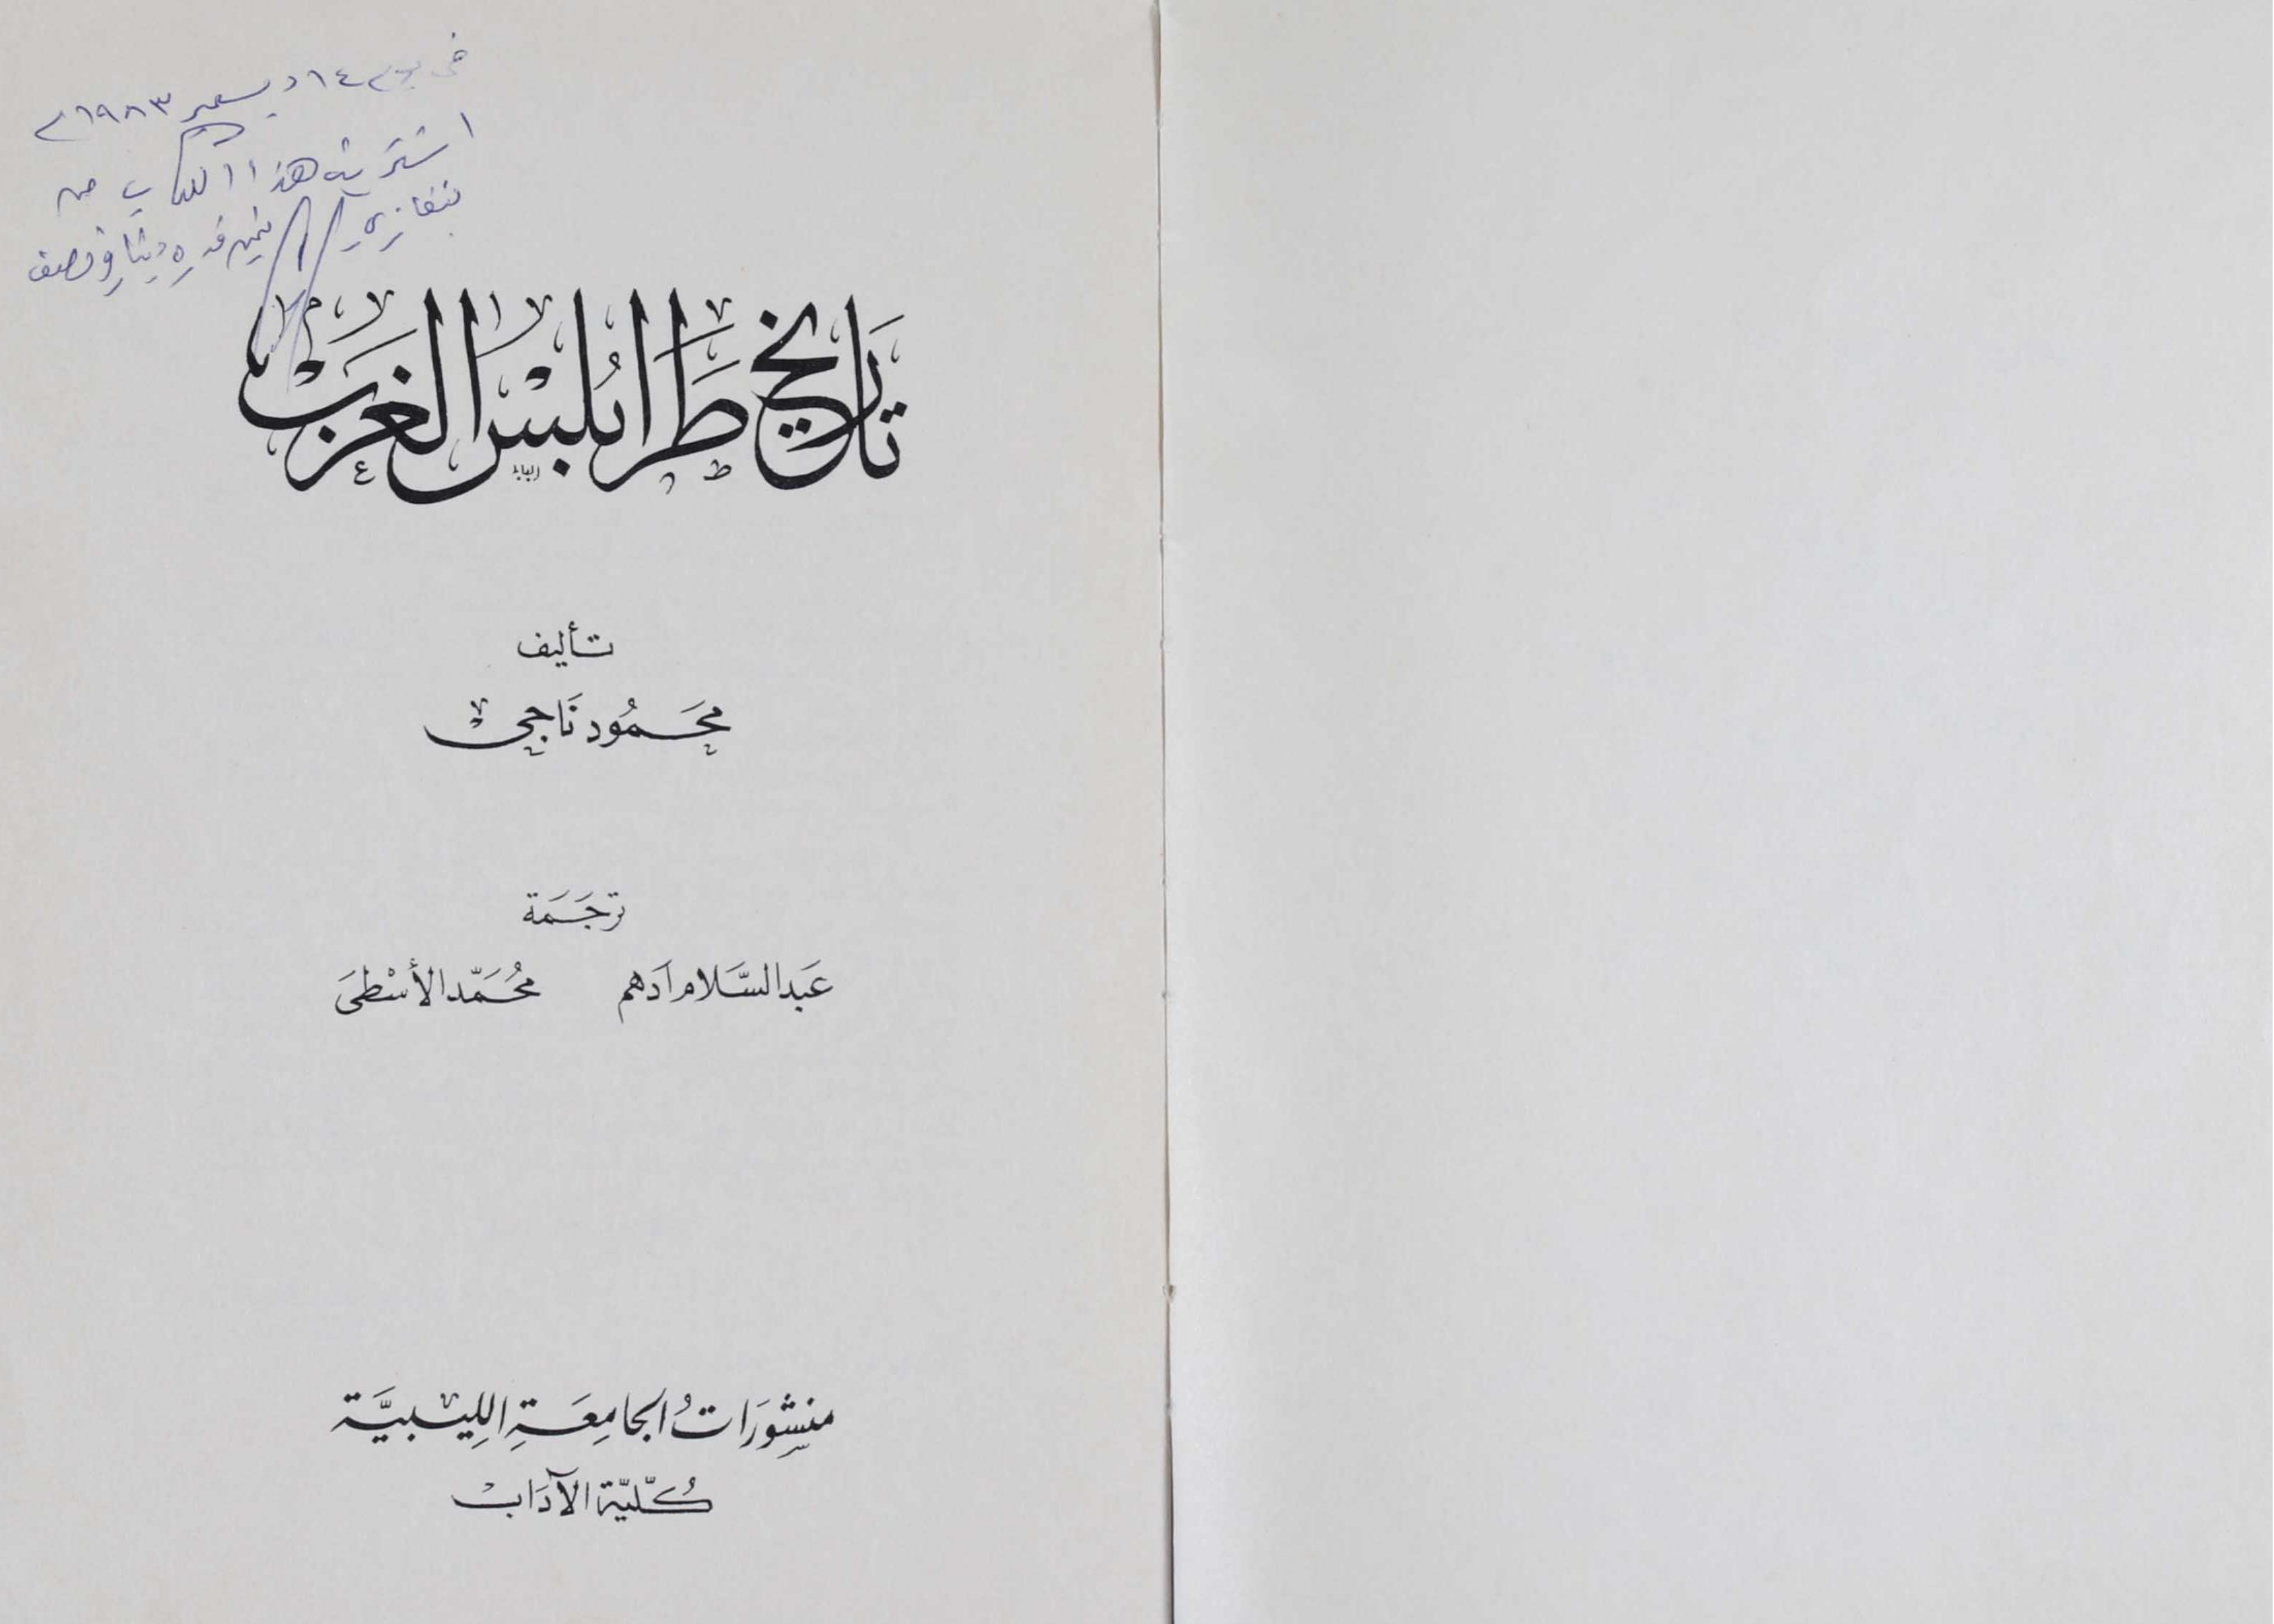 في يوم ١٤ ديسمبر ١٩٨٣م
اشتريت هذا الكتاب من
بنغازي بثمن قدره دينار ونصف
تاريخ طرابلس الغرب
تأليف
محَمُود نَاجي
ترجَمَة
عَبدالسَّلام أدهم محُمَّد الأسْطىَ
منشورَاتُ الجامِعَةِ اللِيبيَّة
كُلّيَّة الآدَاب